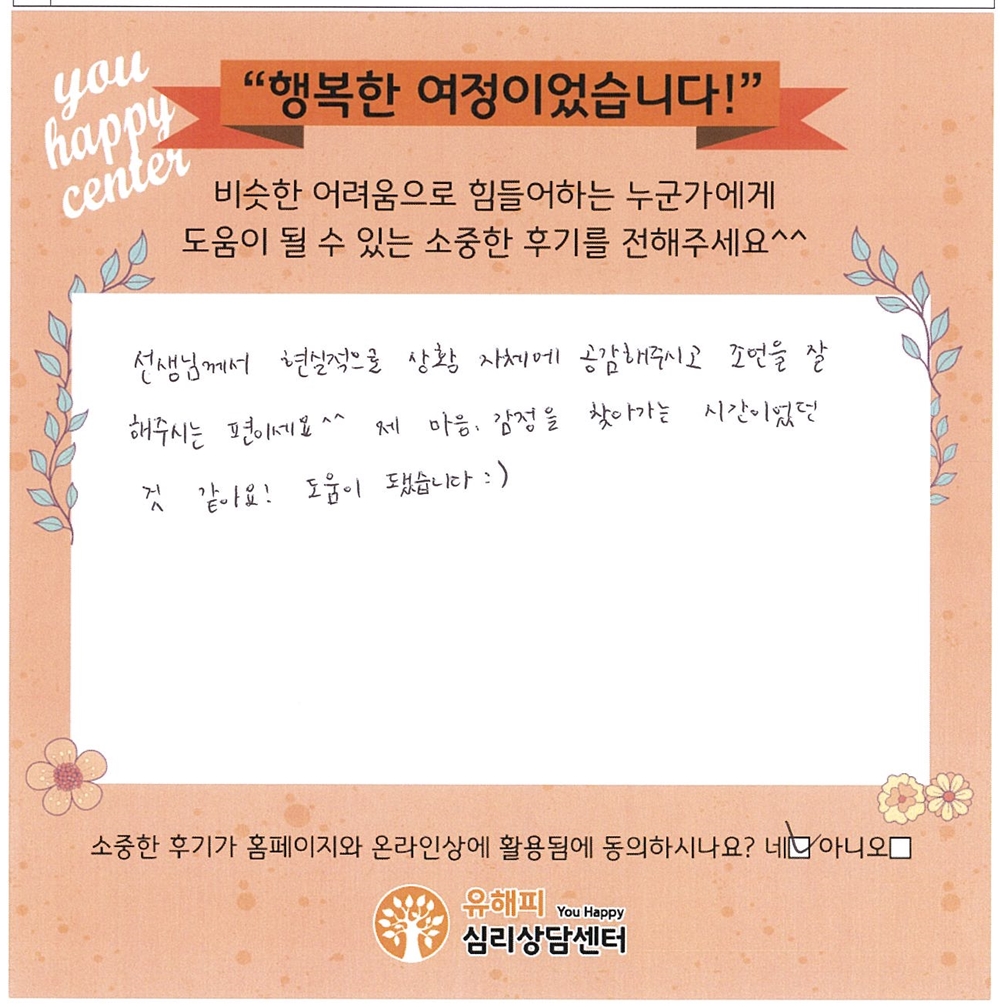 you
happy
center
“행복한 여정이었습니다!”
비슷한 어려움으로 힘들어하는 누군가에게
도움이 될 수 있는 소중한 후기를 전해주세요^^
선생님께서 현실적으로 상황 자체에 공감해주시고 조언을 잘
해주시는 편이세요^^ 제 마음, 감정을 찾아가는 시간이었던
것 같아요! 도움이 됐습니다 :)
소중한 후기가 홈페이지와 온라인상에 활용됨에 동의하시나요? 네☑ 아니오☐
유해피 You Happy
심리상담센터